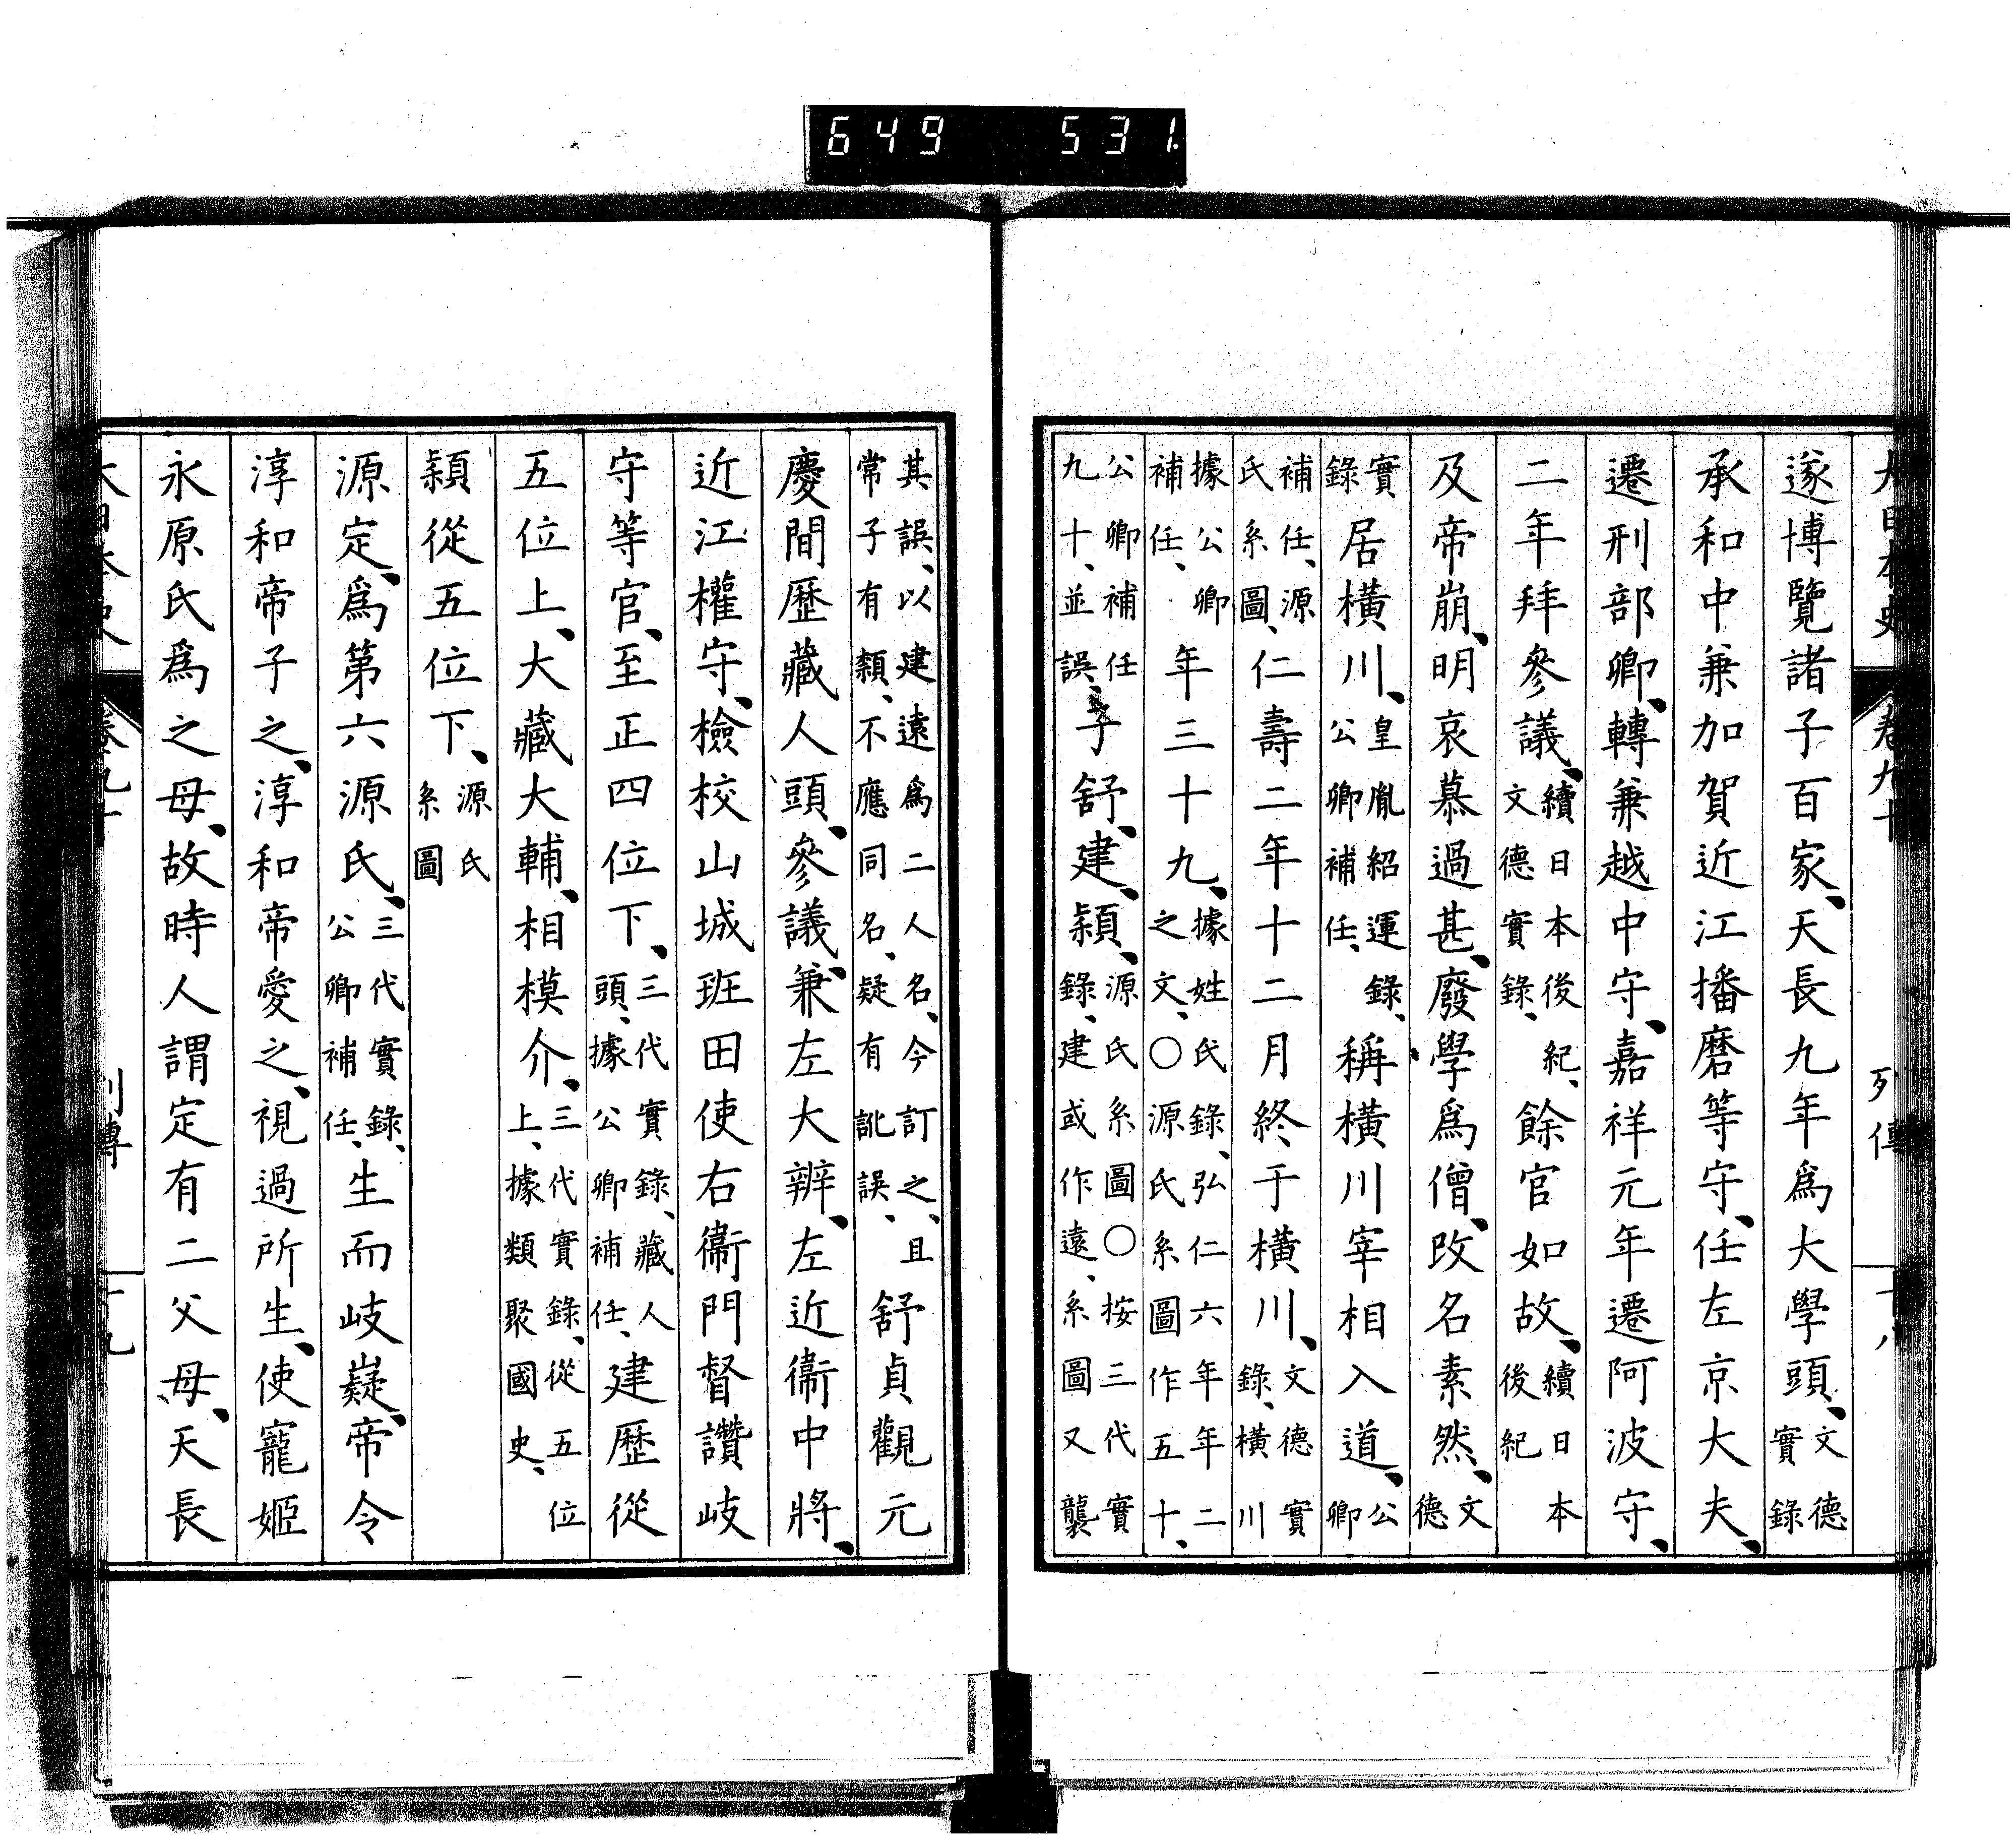 649 531.
大日本史 卷九十 列傳 十八
遂博覽諸子百家、天長九年爲大學頭、文德實錄
承和中兼加賀近江播磨等守、任左京大夫、
遷刑部卿、轉兼越中守、嘉祥元年遷阿波守、
二年拜參議、續日本後紀、文德實錄、餘官如故、續日本後紀
及帝崩、明哀慕過甚、廢學爲僧、改名素然、文德
實錄居橫川、皇胤紹運錄、公卿補任、稱橫川宰相入道、公卿
補任、源氏系圖、仁壽二年十二月終于橫川、文德實錄、橫川
據公卿補任、年三十九、據姓氏錄、弘仁六年年二之文、〇源氏系圖作五十、
公卿補任九十、並誤、子舒、建、穎、源氏系圖〇按三代實錄、建或作遠、系圖又襲
其誤、以建遠爲二人名、今訂之、且常子有穎、不應同名、疑有訛誤、舒貞觀元
慶間歷藏人頭、參議、兼左大辨、左近衞中將、
近江權守、檢校山城班田使右衞門督讚岐
守等官、至正四位下、三代實錄、藏人頭、據公卿補任、建歷從
五位上、大藏大輔、相模介、三代實錄、從五位上、據類聚國史、
穎從五位下、源氏系圖
源定、爲第六源氏、三代實錄、公卿補任、生而岐嶷、帝令
淳和帝子之、淳和帝愛之、視過所生、使寵姬
永原氏爲之母、故時人謂定有二父母、天長
大日本史 卷九十 列傳 十九